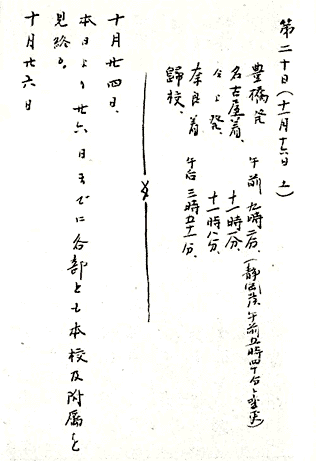 第二十日(十一月十六日 土)
豊橋発 午前 九時二〇分、(静岡発午前五時四十分ニ変更)
名古屋着、 十一時一分、
〃 〃 発、 十一時八分、
奈良着 午后 三時五十一分、
歸校、
十月廿四日、
本日より廿六日までに各部とも本校及附属を
見終る。
十月廿六日